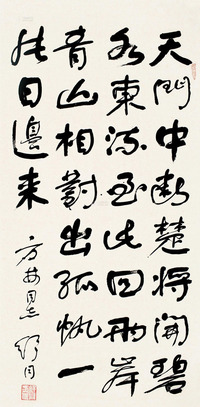 天門中断楚江開碧
水東流至此回兩岸
青山相對出孤帆一
片日邊来
同志 舒同